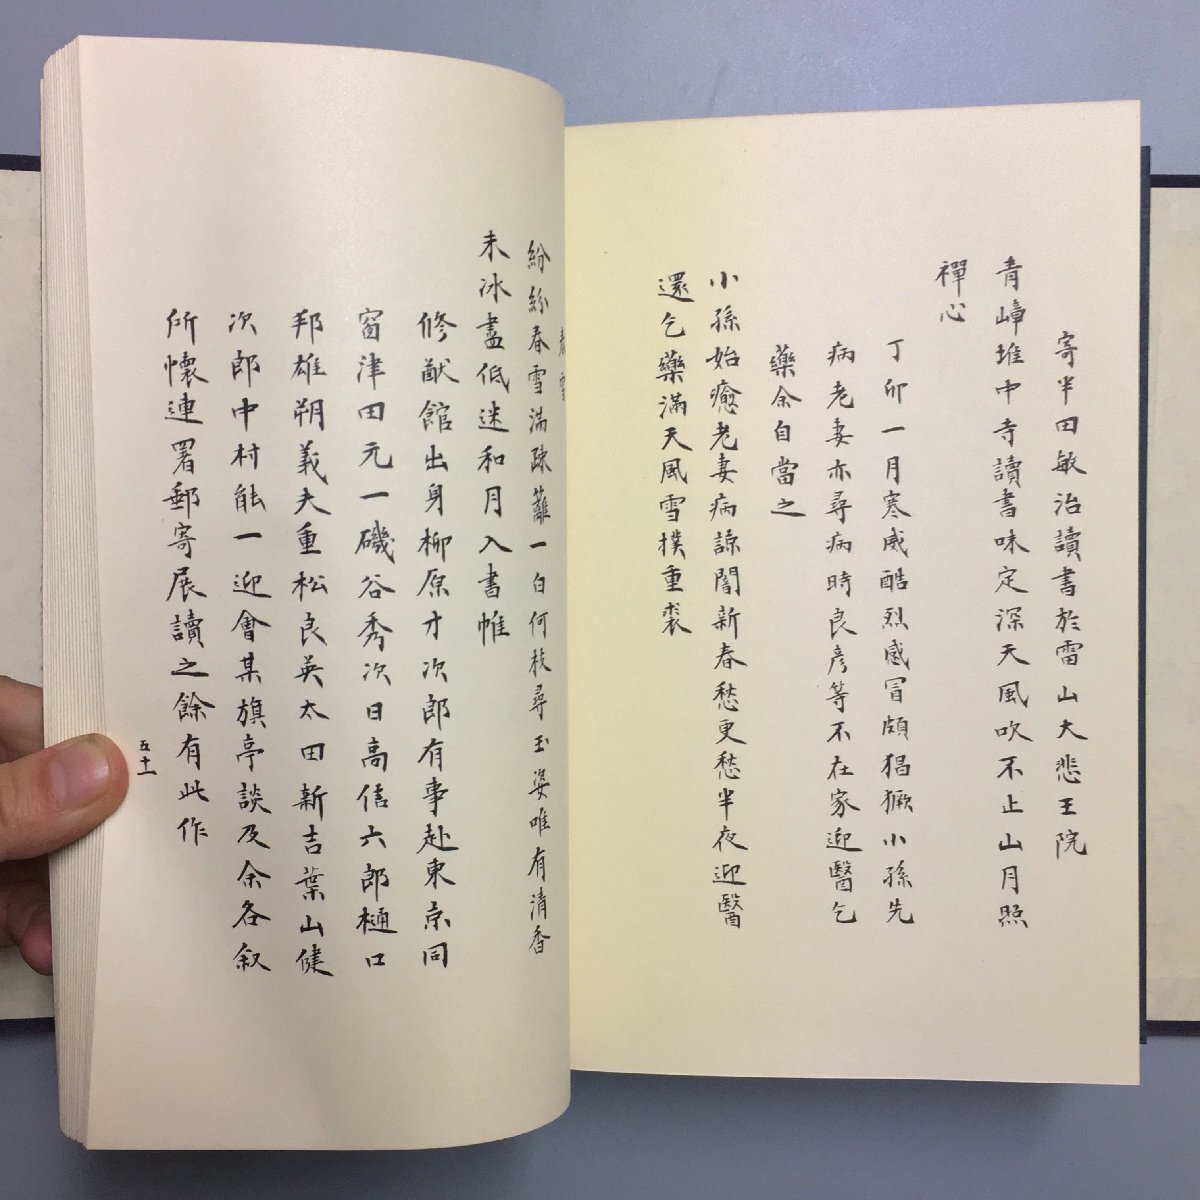 寄半田敏治讀書於雷山大悲王院
青嶂堆中寺讀書味定深天風吹不止山月照
禪心
丁卯一月寒威酷烈感冒頗猖獗小孫先
病老妻亦尋病時良彥等不在家迎醫乞
藥余自當之
小孫始癒老妻病諒闇新春愁更愁半夜迎醫
還乞藥滿天風雪撲重裘
春雪
紛紛春雪滿疎籬一白何枝尋玉姿唯有清香
未冰盡低迷和月入書帷
修猷館出身柳原才次郎有事赴東京同
窗津田元一磯谷秀次日高信六郎樋口
邦雄朔義夫重松良英太田新吉葉山健
次郎中村能一迎會某旗亭談及余各叙
所懷連署郵寄展讀之餘有此作
五十一